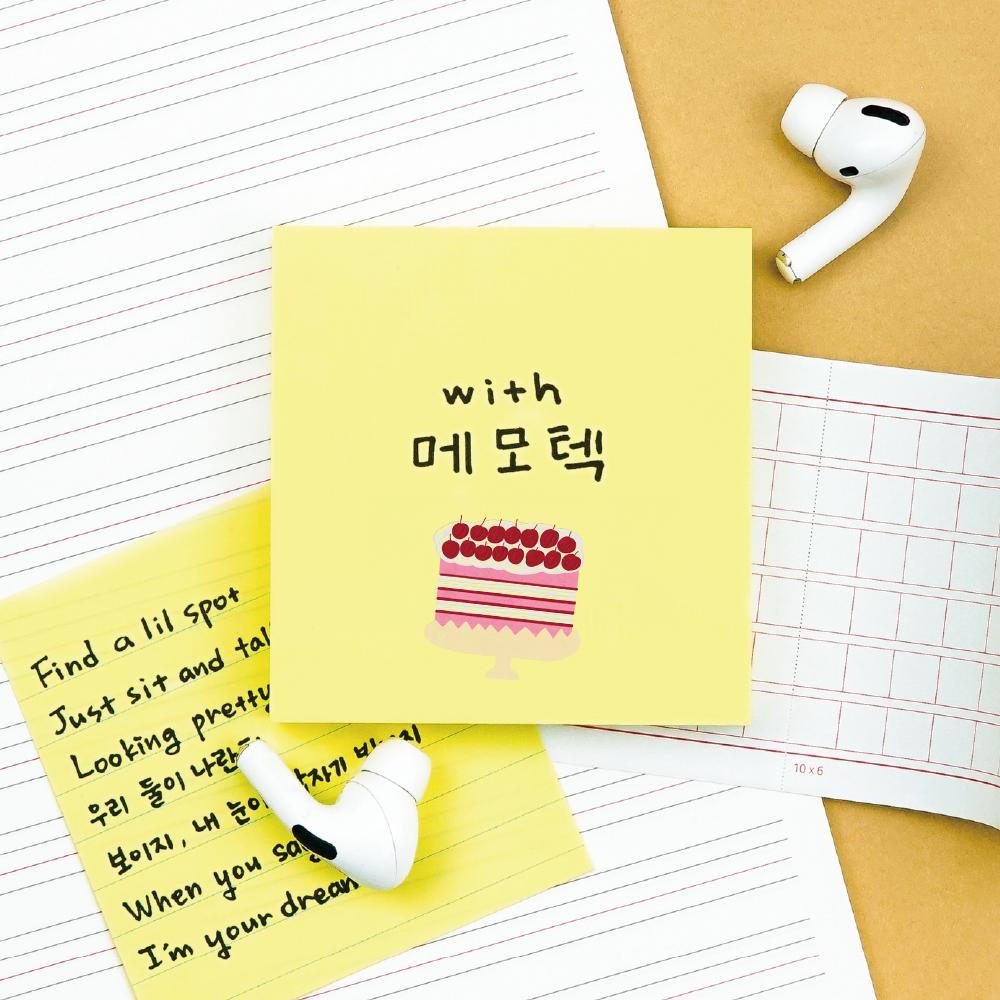 with
메모텍
Find a lil spot
Just sit and
Looking pretty
우리 둘이
보이지, 내 눈이
When you
I'm your dream
10 x 6